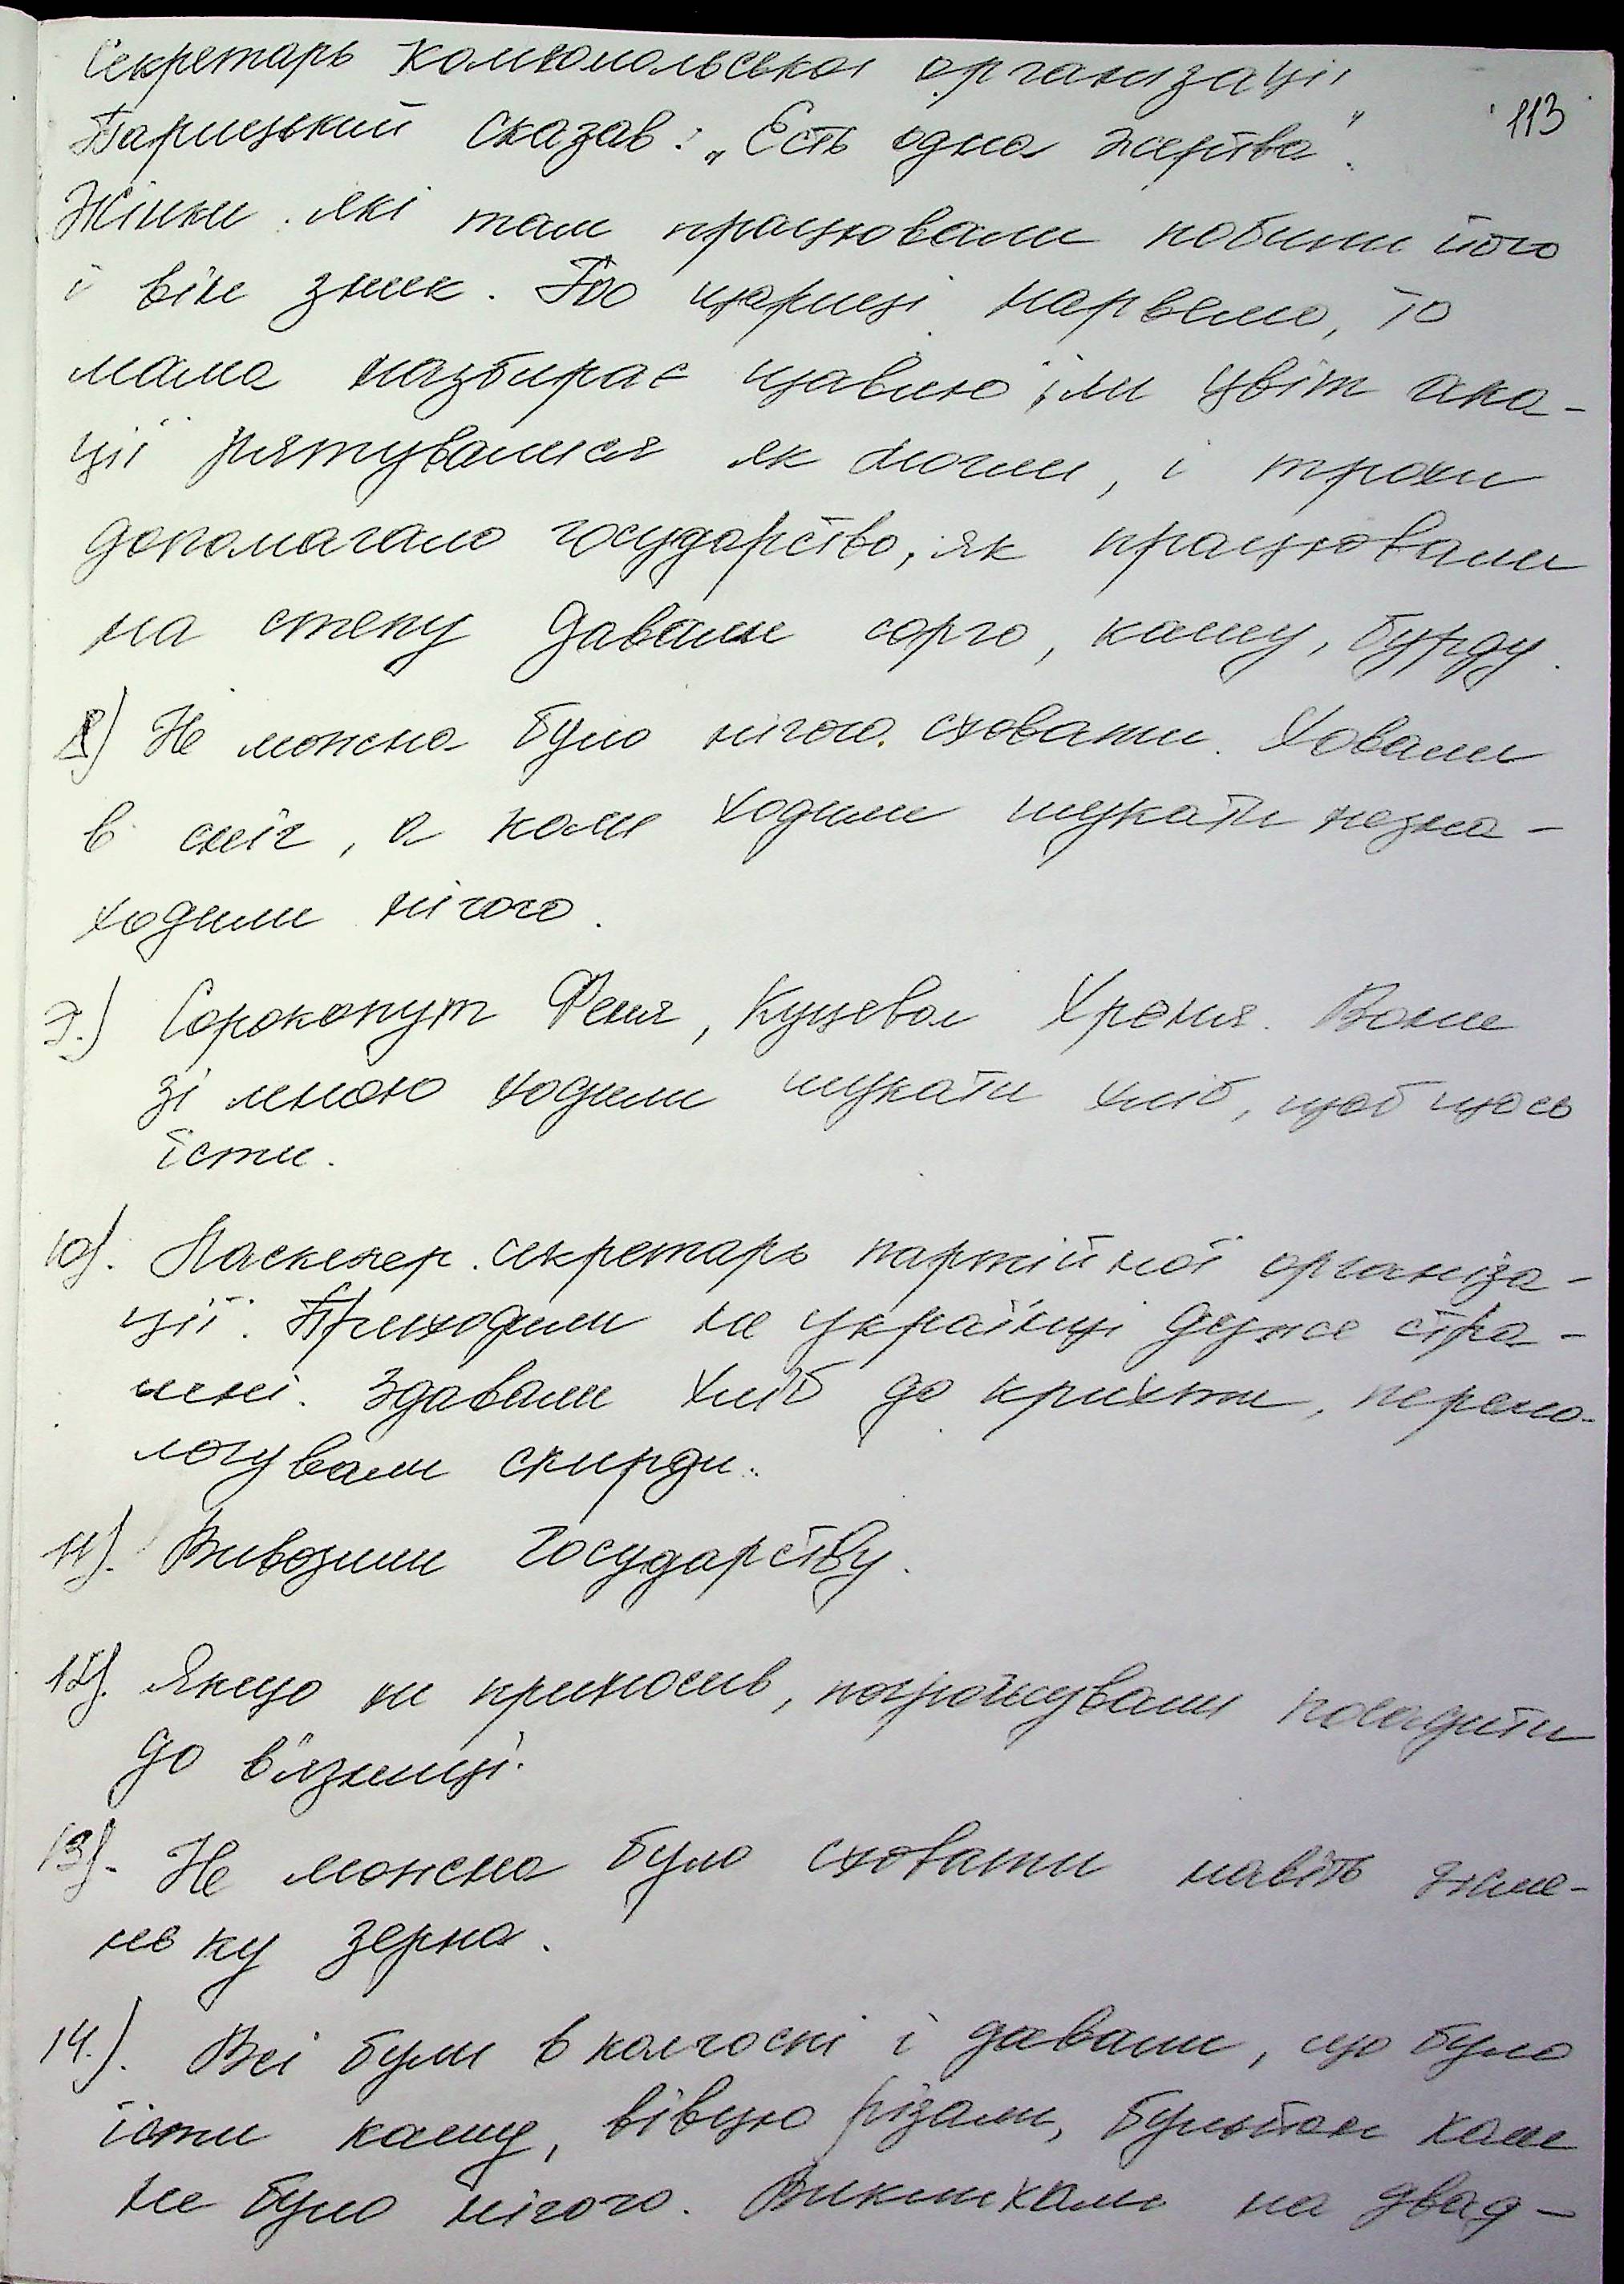 Секретарь комсомольської организації
113
Барицький сказав: „Есть одна жертва".
Жінки які там працювали побили його
і він зник. Або щириці нарвемо, то
мама назбирає щавлю їли цвіт ака-
ції рятувалися як могли, і трохи
допомагало государство, як працювали
на степу давали сорго, кашу, бурду.
8) Не можна було нічого сховати. Ховали
в сніг, а коли ходили шукати незна-
ходили нічого.
9.) Сорокопут Феня, Куцевол Хреня. Вони
зі мною ходили шукати хліб, щоб щось
їсти.
10). Паскенер секретарь партійної організа-
ції. Приходили не українці дуже стра-
шні. Здавали хліб до крихти, перемо-
лочували скирди.
11). Вивозили государству.
12). Якщо не приносив, погрожували посадити
до вязниці.
13). Не можна було сховати навіть жме-
ньку зерна.
14.). Всі були в колгоспі і давали, що було
їсти кашу, вівцю різали, бульйон коли
не було нічого. Викликали на двад-